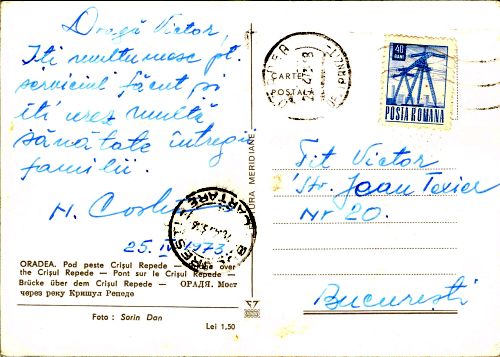 Dragă Victor,
Iți mulțumesc pt.
serviciul făcut și
iți urez multă
sănătate întregii
familii.
25. IV 1973
ORADEA. Pod peste Crișul Repede — over
the Crișul Repede — Pont sur le Crișul Repede —
Brücke über dem Crișul Repede — ОРАДЯ. Мост
через реку Кришул Репеде
Foto : Sorin Dan
Lei 1,50
MERIDIANE
ORADEA
CARTE
POSTALA
CARTARE
40
BANI
POSTA ROMANA
Tit Victor
Str. Joan
Nr 20.
București